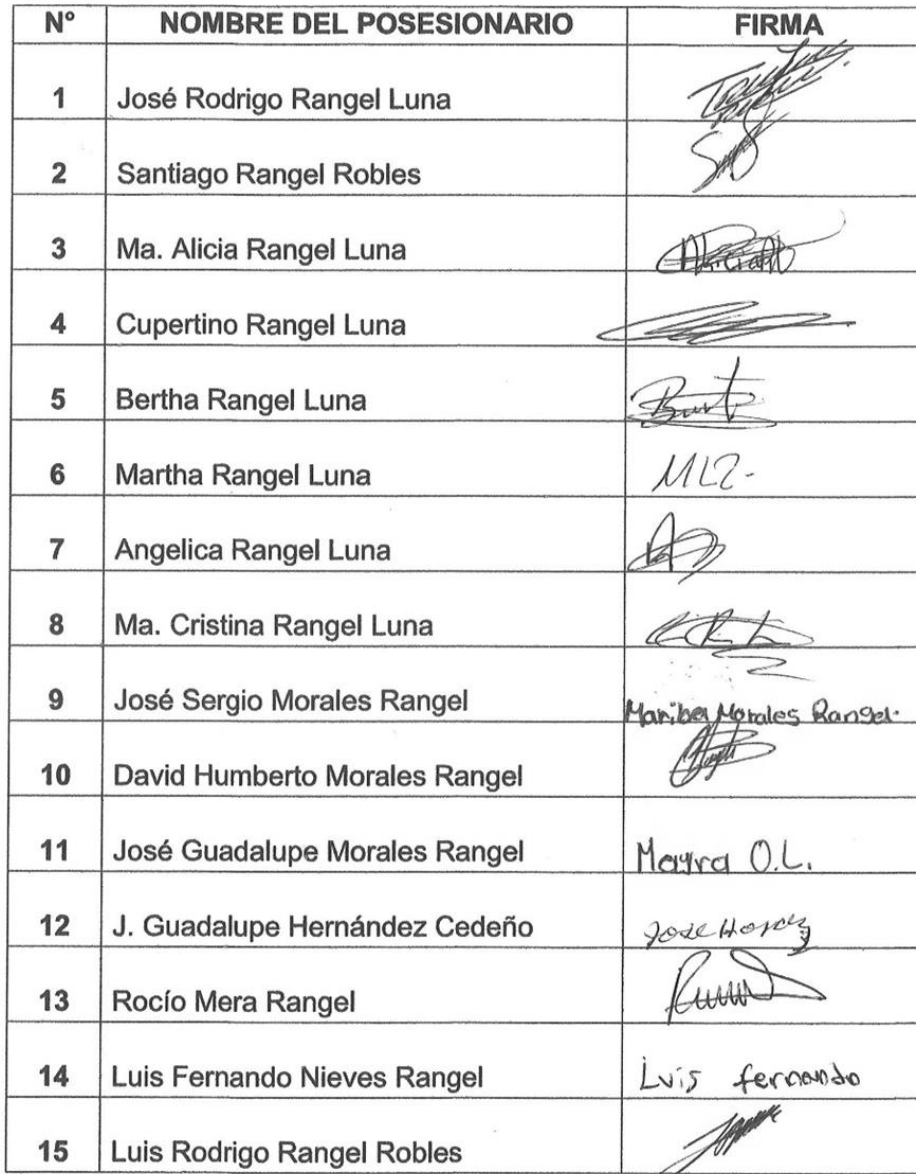 N° NOMBRE DEL POSESIONARIO FIRMA
1 José Rodrigo Rangel Luna
2 Santiago Rangel Robles
3 Ma. Alicia Rangel Luna
4 Cupertino Rangel Luna
5 Bertha Rangel Luna
6 Martha Rangel Luna
7 Angelica Rangel Luna
8 Ma. Cristina Rangel Luna
9 José Sergio Morales Rangel Maribel Morales Rangel.
10 David Humberto Morales Rangel
11 José Guadalupe Morales Rangel Mayra O.L.
12 J. Guadalupe Hernández Cedeño
13 Rocío Mera Rangel
14 Luis Fernando Nieves Rangel Luis fernando
15 Luis Rodrigo Rangel Robles